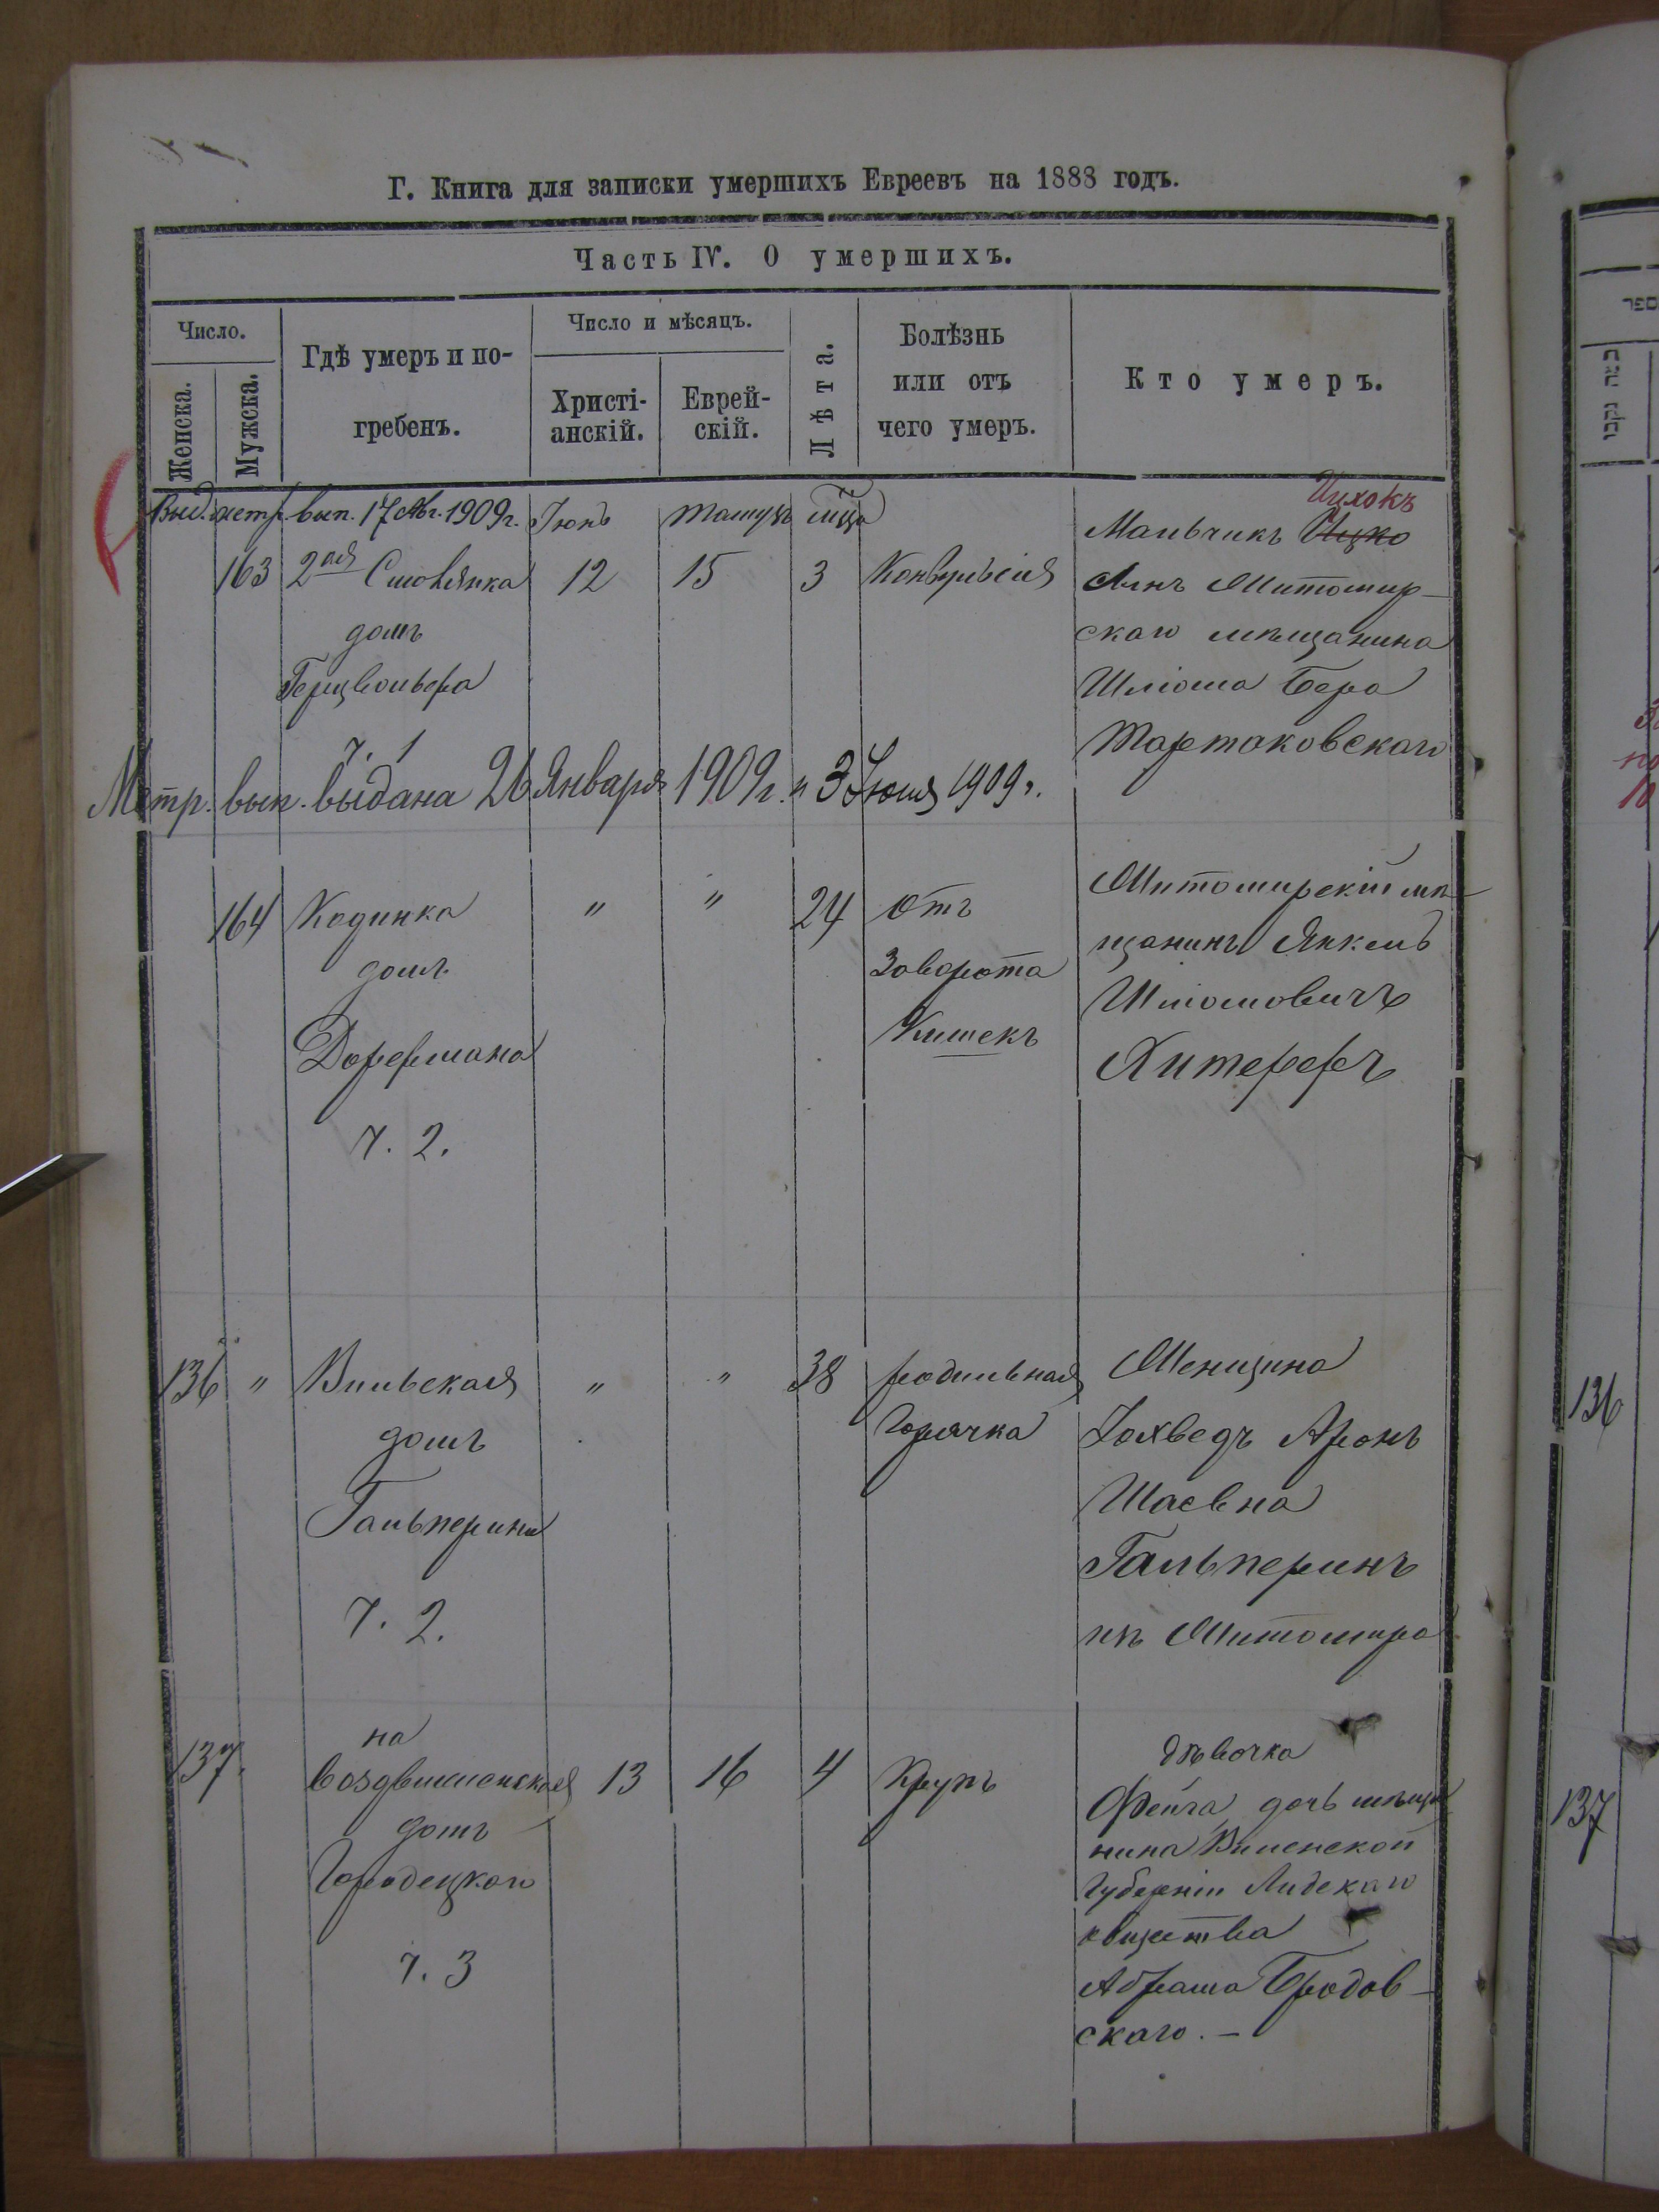 Г. Книга для записки умершихъ Евреевъ на 1888 годъ.
Часть IV. О умершихъ.
Число.
Женска.
Мужска.
Гдѣ умеръ и по-
гребенъ.
Число и мѣсяцъ.
Христі-
анскій.
Еврей-
скій.
Лѣта.
Болѣзнь
или отъ
чего умеръ.
Кто умеръ.
Выд. метр. вып. 17 Авг. 1909 г.
Іюнь
Тамузъ
мѣц
163
2ая Смовянка
домъ
Герцвольфа
ч. 1
12
15
3
Конвульсія
Ицхокъ
Мальчикъ Ицко
сынъ Житомир-
скаго мѣщанина
Шліома Бера
Тартаковскаго
Метр. вып. выдана 26 Января 1909 г. и 3 Іюня 1909 г.
164
Кодинка
домъ
Дорфмана
ч. 2.
"
"
24
Отъ
Заворота
Кишекъ
Житомирскій мѣ-
щанинъ Янкель
Шліомовичъ
Хитереръ
136
"
Вильская
домъ
Гальперина
ч. 2.
"
"
38
родильная
Горячка
Женщина
Іохведъ Аронъ
Шаевна
Гальперинъ
изъ Житомира
137.
на
Воздвиженская
домъ
Городецкого
ч. 3
13
16
4
Крупъ
дѣвочка
Фейга дочь мѣща
нина Виленской
Губерніи Лидскаго
общества
Абрама Бродов-
скаго. –
136
137